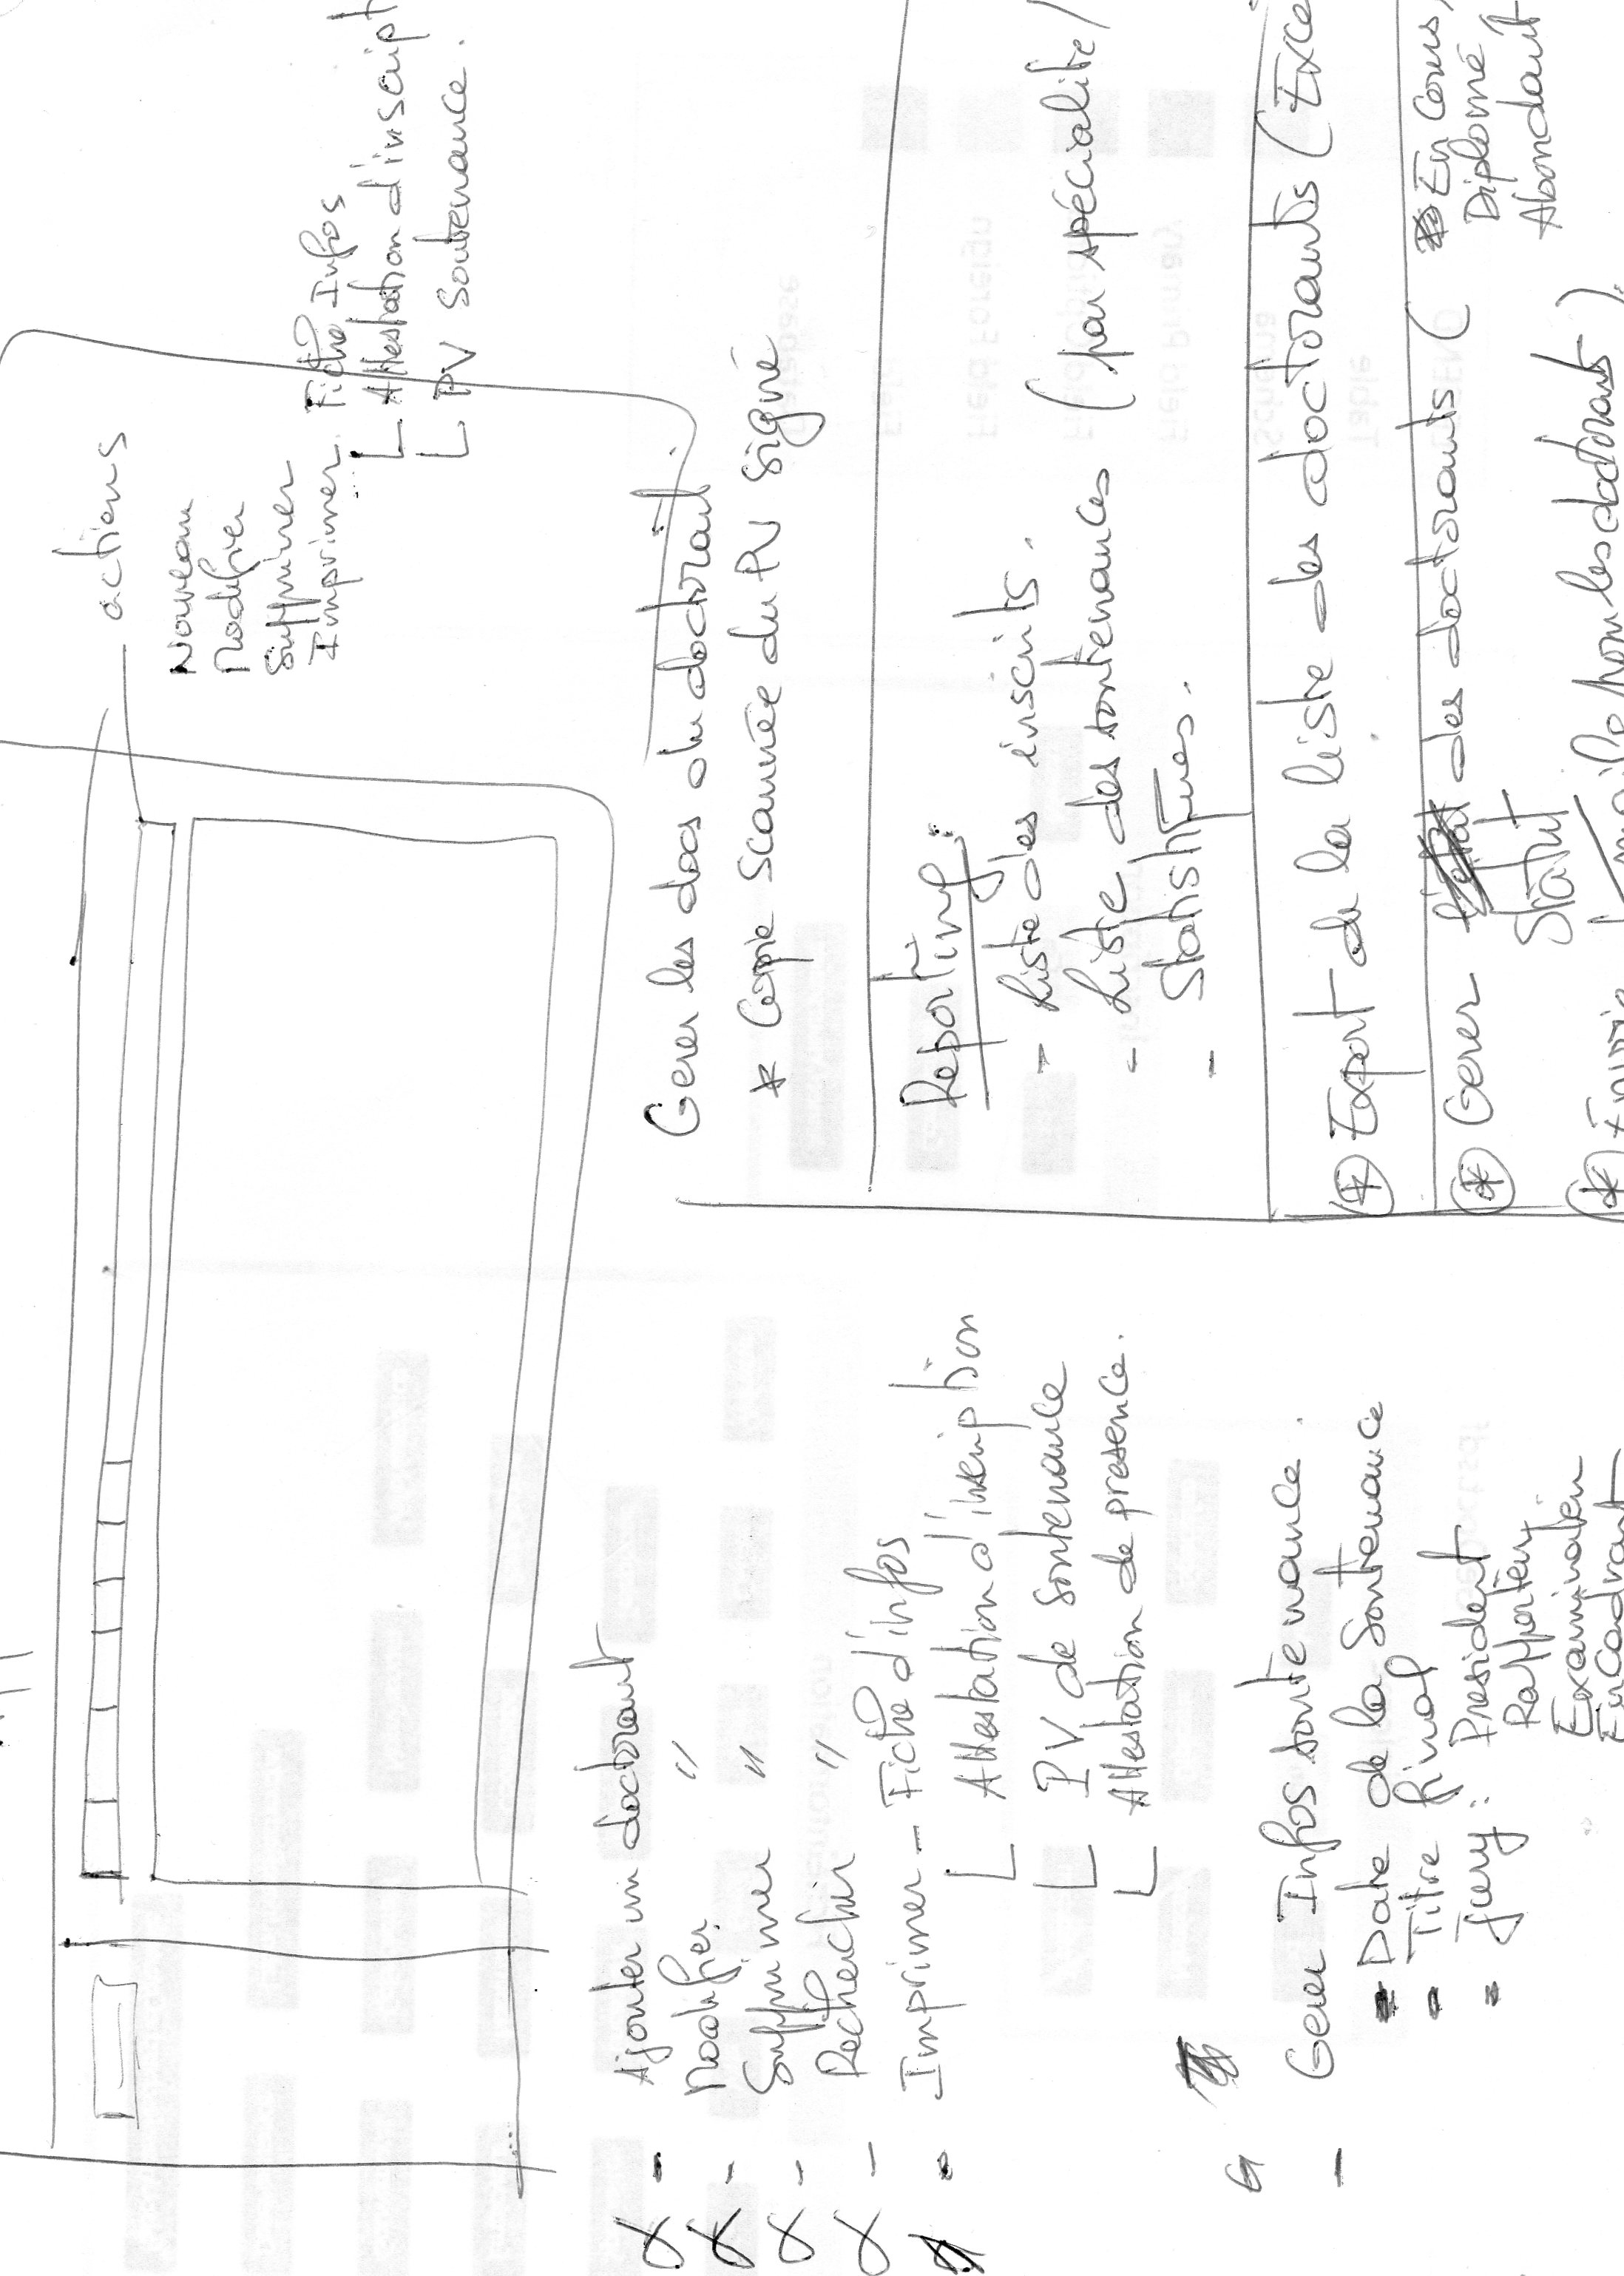 actions
Nouveau
Modifier
Supprimer
Imprimer. Fiche Infos
Attestation d'inscript
PV Soutenance.
- Ajouter un doctorant
- Modifier "
- Supprimer "
- Rechercher "
- Imprimer - Fiche d'infos
Attestation d'inscription
PV de soutenance
Attestation de presence.
- Gerer Infos soutenance.
- Date de la Soutenance
- Titre final
- Jury: President
Rapporteur
Examinateur
Encadrant
Gerer les docs du doctorant.
* Copie Scannée du PV signé
Reporting:
- Liste des inscrits.
- Liste des soutenances (par spécialité/
- Statistiques.
* Export de la liste des doctorants (Exce
* Gerer Statut des doctorants ( En Cours,
Diplomé
Abondant
pour les doctorants).